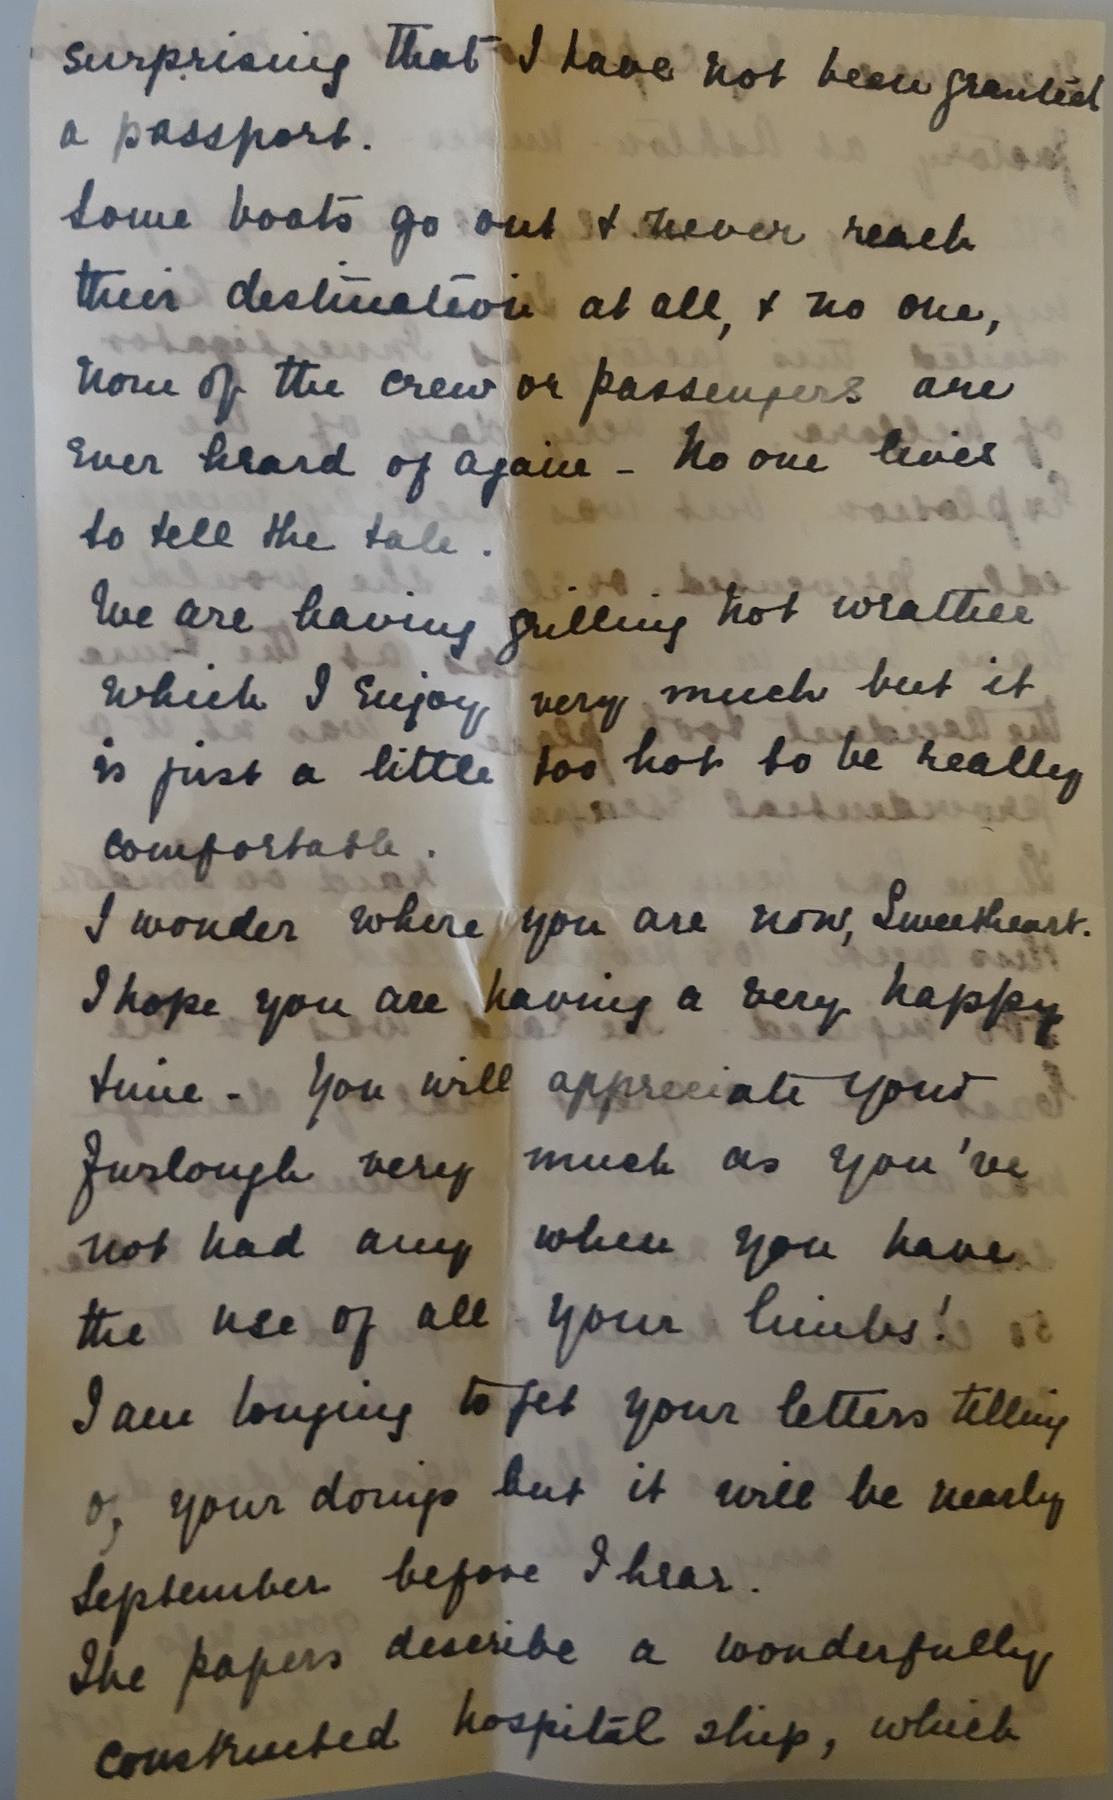 surprising that I have not been granted
a passport.
Some boats go out & never reach
their destination at all, & no one,
none of the crew or passengers are
ever heard of again - No one lives
to tell the tale.
We are having grilling hot weather
which I enjoy very much but it
is just a little too hot to be really
comfortable.
I wonder where you are now, Sweetheart.
I hope you are having a very happy
time - You will appreciate your
furlough very much as you've
not had any when you have
the use of all your limbs!
I am longing to get your letters telling
of your doings but it will be nearly
September before I hear.
The papers describe a wonderfully
constructed hospital ship, which